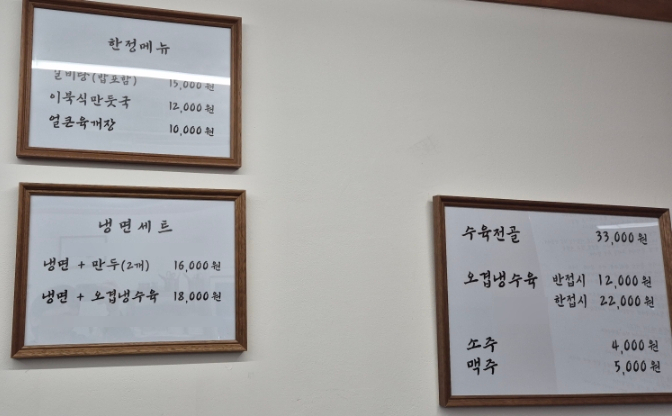 한정메뉴
갈비탕(밥포함) 15,000원
이북식만둣국 12,000원
얼큰육개장 10,000원
냉면세트
냉면 + 만두(2개) 16,000원
냉면 + 오겹냉수육 18,000원
수육전골 33,000원
오겹냉수육 반접시 12,000원
한접시 22,000원
소주 4,000원
맥주 5,000원